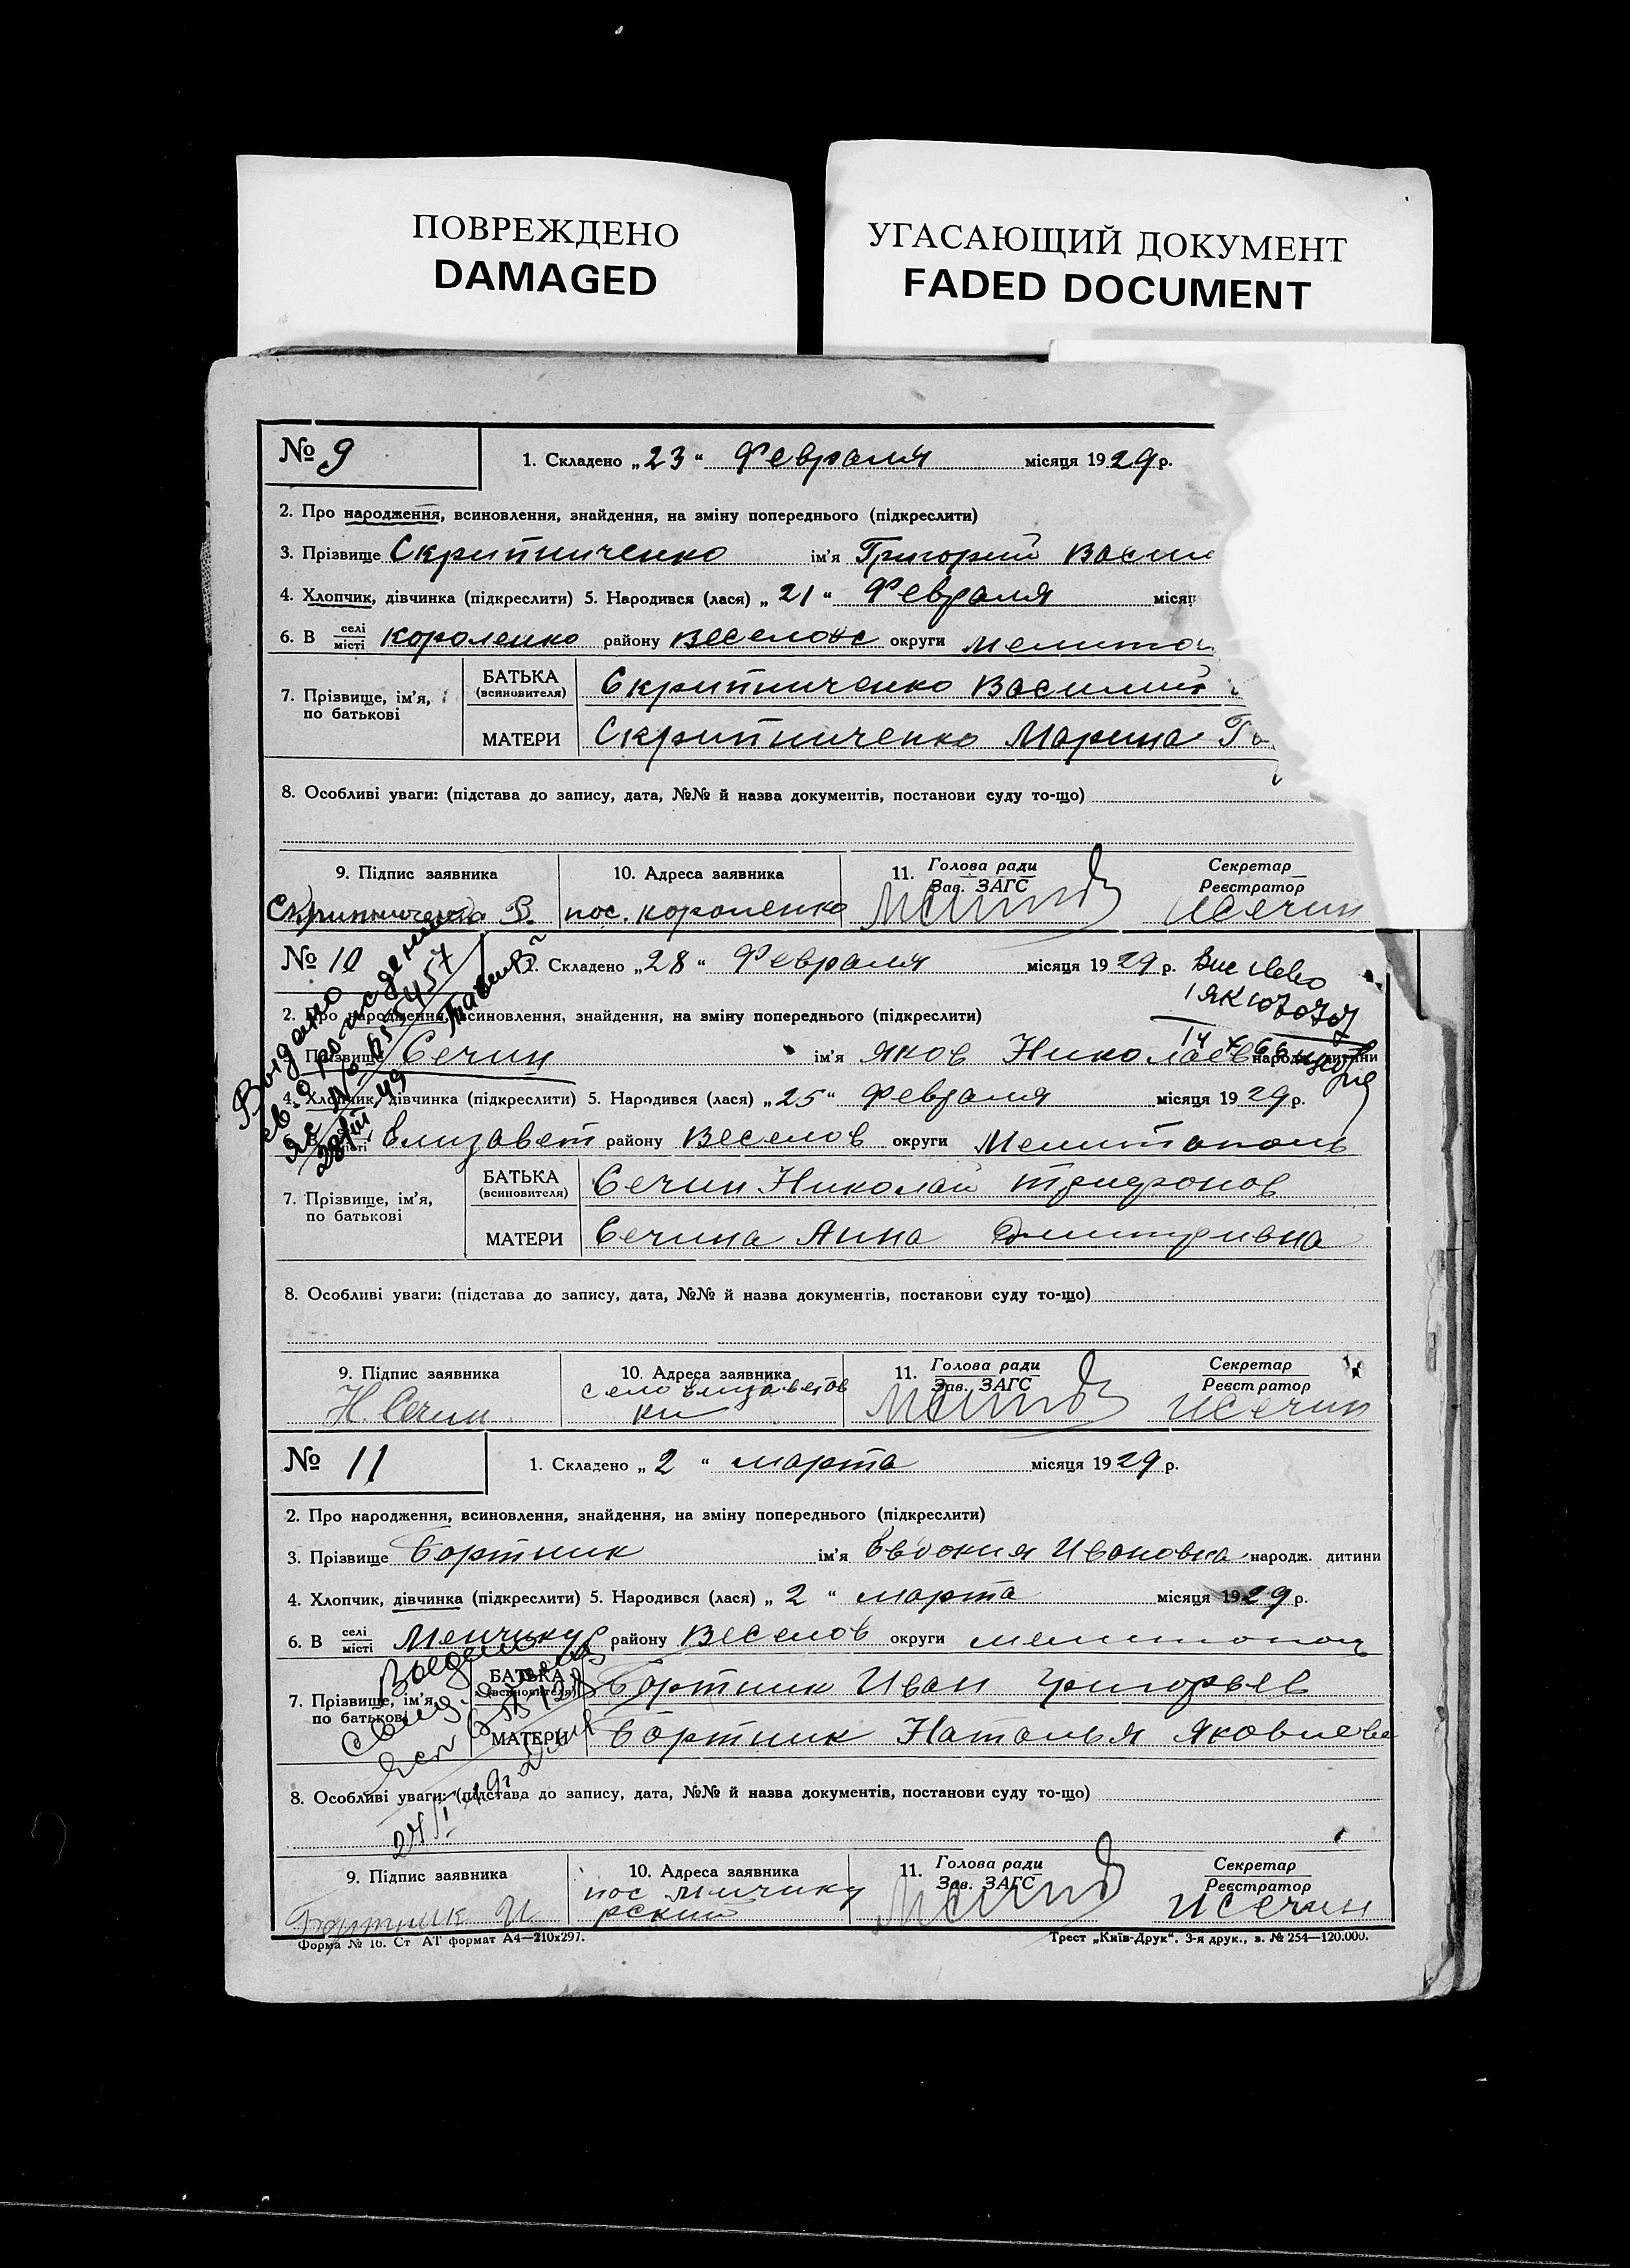 ПОВРЕЖДЕНО
DAMAGED
УГАСАЮЩИЙ ДОКУМЕНТ
FADED DOCUMENT
№ 9
1. Складено „23“ Февраля місяця 1929 р.
2. Про народження, всиновлення, знайдення, на зміну попереднього (підкреслити)
3. Прізвище Скрипниченко ім’я Григорий Васи
4. Хлопчик, дівчинка (підкреслити) 5. Народився (лася) „21“ Февраля місяц
6. В селі місті Короленко району Веселовс округи Мелитоп
7. Прізвище, ім’я, по батькові
БАТЬКА (всиновителя) Скрипниченко Василий
МАТЕРИ Скрипниченко Марина
8. Особливі уваги: (підстава до запису, дата, №№ й назва документів, постанови суду то-що)
9. Підпис заявника
10. Адреса заявника
11. Голова ради Зав. ЗАГС
Секретар Реєстратор
Скрипниченко В. пос. Короленко ИСечин
№ 10
1. Складено „28“ Февраля місяця 1929 р.
2. Про народження, всиновлення, знайдення, на зміну попереднього (підкреслити)
Выдано
3. Прізвище Сечин ім’я Яков Николаев народж. дитини
4. Хлопчик, дівчинка (підкреслити) 5. Народився (лася) „25“ Февраля місяця 1929 р.
6. В місті Елизавет району Веселов округи Мелитополь
7. Прізвище, ім’я, по батькові
БАТЬКА (всиновителя) Сечин Николай Трифонов
МАТЕРИ Сечина Анна Дмитривна
8. Особливі уваги: (підстава до запису, дата, №№ й назва документів, постанови суду то-що)
9. Підпис заявника
10. Адреса заявника
11. Голова ради Зав. ЗАГС
Секретар Реєстратор
Н. Сечин село Елизаветов ки ИСечин
№ 11
1. Складено „2“ марта місяця 1929 р.
2. Про народження, всиновлення, знайдення, на зміну попереднього (підкреслити)
3. Прізвище Бортник ім’я Евдокия Ивановна народж. дитини
4. Хлопчик, дівчинка (підкреслити) 5. Народився (лася) „2“ марта місяця 1929 р.
6. В селі місті Менчикур району Веселов округи мелитополь
7. Прізвище, ім’я, по батькові
БАТЬКА (всиновителя) Бортник Иван Григорьев
МАТЕРИ Бортник Наталья Яковлевн
8. Особливі уваги: (підстава до запису, дата, №№ й назва документів, постанови суду то-що)
9. Підпис заявника
10. Адреса заявника
11. Голова ради Зав. ЗАГС
Секретар Реєстратор
Бортник И пос Минчику рский ИСечин
Форма № 16. Ст АТ формат А4—210х297.
Трест „Київ-Друк“. 3-я друк., з. № 254—120.000.